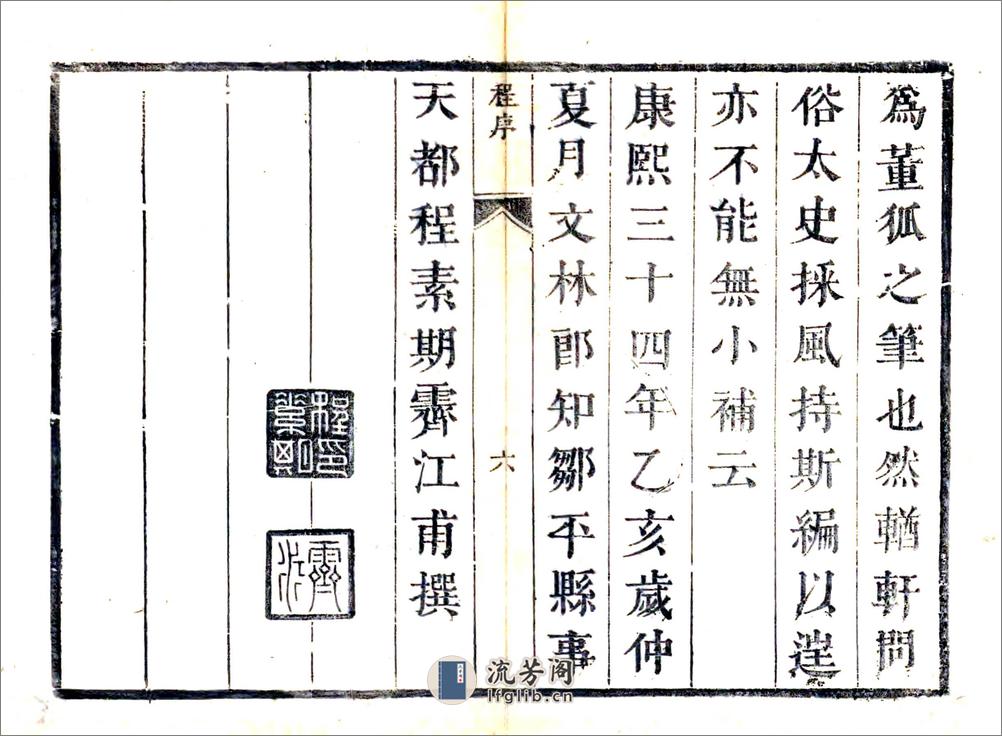 爲董狐之筆也然輶軒問
俗太史採風持斯編以逞
亦不能無小補云
康熙三十四年乙亥歲仲
夏月文林郎知鄒平縣事
程序
六
天都程素期霽江甫撰
霽江
流芳阁
lfglib.cn